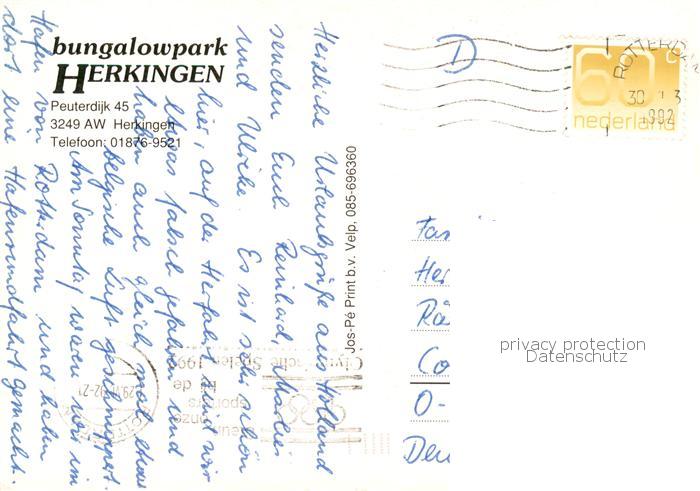 bungalowpark
HERKINGEN
Peuterdijk 45
3249 AW Herkingen
Telefoon: 01876-9521
Herzliche Urlaubsgrüße aus Holland
senden Euch Reinhard,
und Ulrike. Es ist sehr schön
hier, auf der Herfahrt sind wir
etwas falsch gefahren und
haben auch gleich mal etwas
belgische Luft geschnuppert.
Am Sonntag waren wir im
Hafen von Rotterdam und haben
dort eine Hafenrundfahrt gemacht.
Jos-Pé Print b.v. Velp, 085-696360
D
ROTTERDAM
30
1992
60 c
nederland
Fa
He
Rä
Co
O-
Deu
privacy protection
Datenschutz
Steun
onze
sporters
bij de
Olympische Spelen 1992